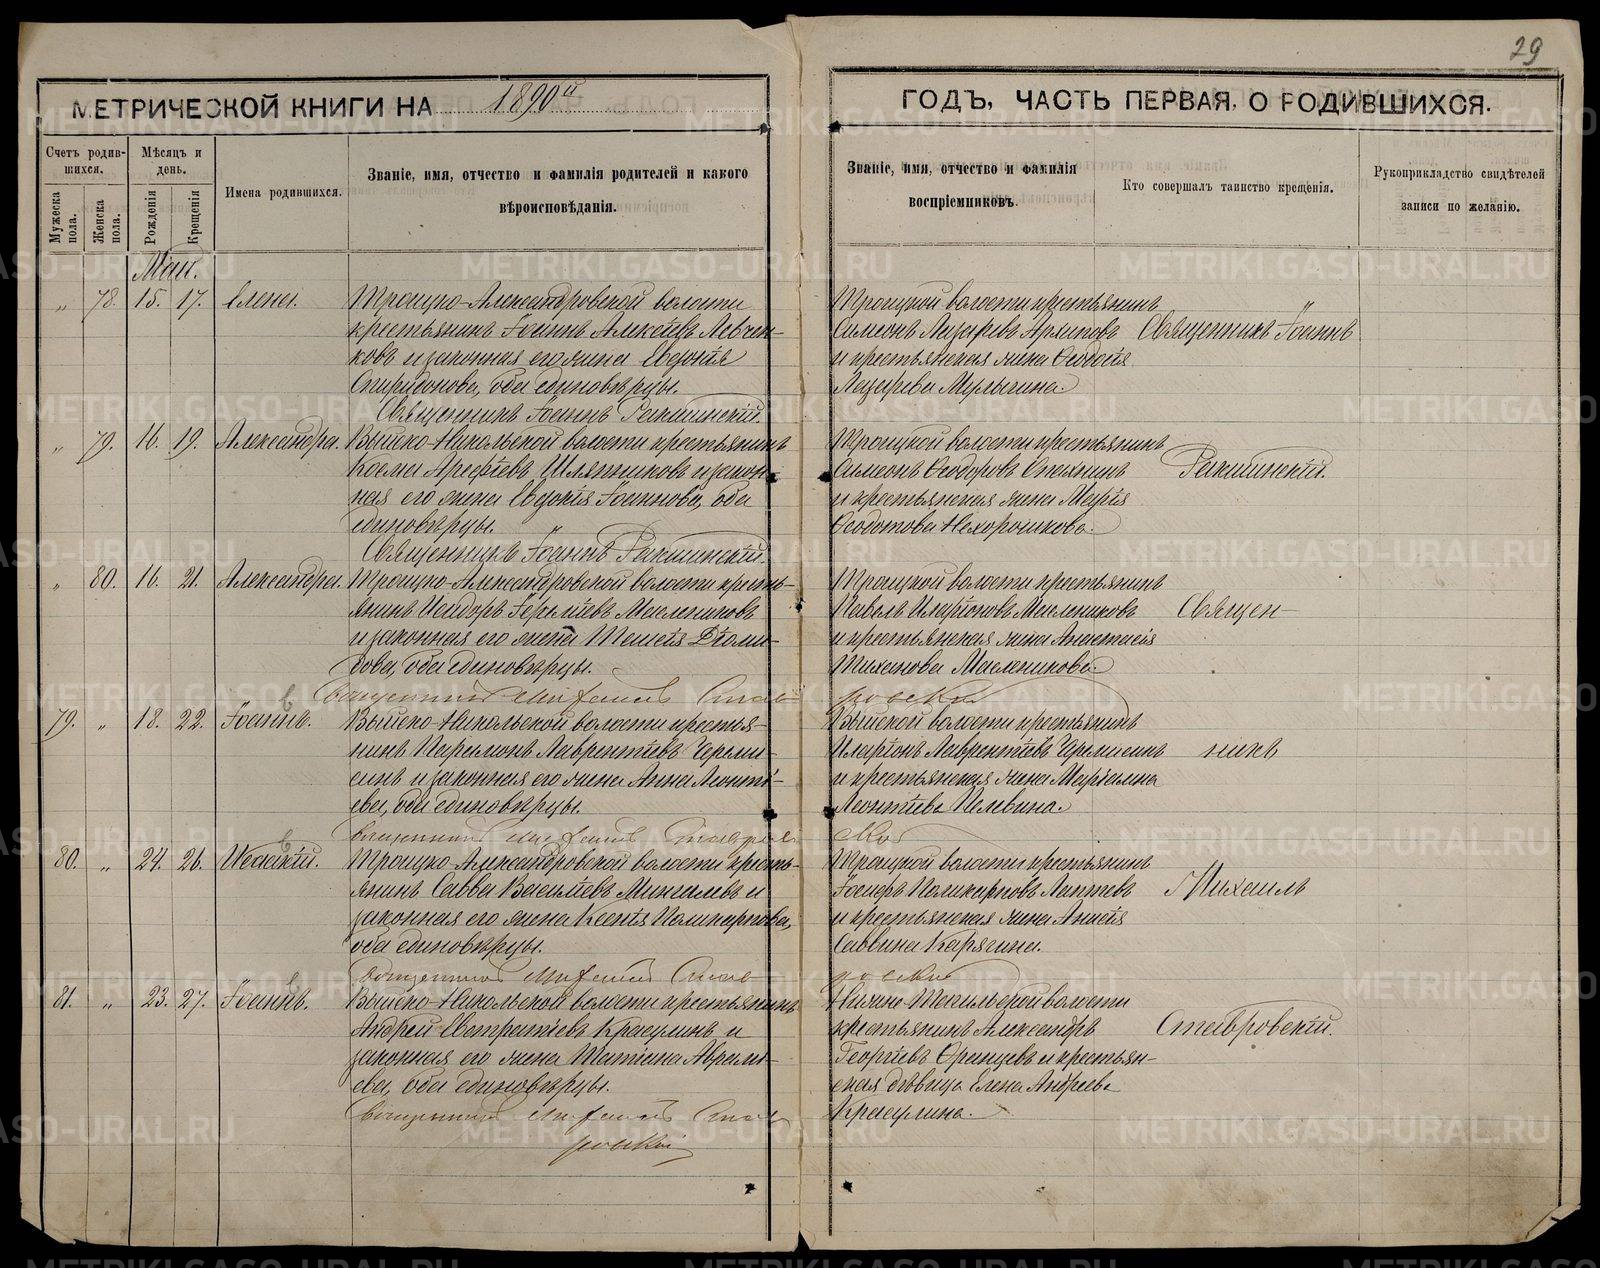 29
МЕТРИЧЕСКОЙ КНИГИ НА 1890й
ГОДЪ, ЧАСТЬ ПЕРВАЯ, О РОДИВШИХСЯ.
Счетъ родив-
шихся.
Мужеска пола.
Женска пола.
Мѣсяцъ и
день.
Рожденія
Крещенія
Имена родившихся.
Званіе, имя, отчество и фамилія родителей и какого
вѣроисповѣданія.
Званіе, имя, отчество и фамилія
воспріемниковъ.
Кто совершалъ таинство крещенія.
Рукоприкладство свидѣтелей
записи по желанію.
Май.
„ 78. 15. 17. Елена.
Троицко-Александровской волости
крестьянинъ Іоаннъ Алексѣевъ Левчен-
ковъ и законная его жена Евдокія
Спиридонова, оба единовѣрцы.
Священникъ Іоаннъ
Троицкой волости крестьянинъ
Симеонъ Лазаревъ Архиповъ
и крестьянская жена Ѳеодосія
Лазарева Мурыгина.
Священникъ Іоаннъ
„ 79. 16. 19. Александра.
Выйско-Никольской волости крестьянинъ
Косма Арефіевъ Шляпниковъ и закон-
ная его жена Евдокія Іоаннова, оба
единовѣрцы.
Священникъ Іоаннъ
Троицкой волости крестьянинъ
Симеонъ Ѳеодоровъ
и крестьянская жена Марія
Ѳеодотова Нехорошкова.
„ 80. 16. 21. Александра.
Троицко-Александровской волости кресть-
янинъ Исидоръ Масленниковъ
и законная его жена Таисія Діоми-
дова, оба единовѣрцы.
Священникъ Михаилъ Став-
ровскій
Троицкой волости крестьянинъ
Павелъ Иларіоновъ Масленниковъ
и крестьянская жена Анастасія
Тихонова Масленникова.
Священ-
79. „ 18. 22. Іоаннъ.
Выйско-Никольской волости крестья-
нинъ Парамонъ Лаврентіевъ Череми-
синъ и законная его жена Анна Леонті-
ева, оба единовѣрцы.
Священникъ Михаилъ Ставров
скій
Выйской волости крестьянинъ
Иларіонъ Лаврентіевъ Черемисинъ
и крестьянская жена Маріамна
Леонтіева Пелевина.
никъ
80. „ 24. 26. Исаакій.
Троицко-Александровской волости кресть-
янинъ Савва Васильевъ и
законная его жена Ксенія Поликарпова,
оба единовѣрцы.
Священникъ Михаилъ Став
ровскій
Троицкой волости крестьянинъ
Іосифъ Поликарповъ Лаптевъ
и крестьянская жена Анисія
Саввина Карягина.
Михаилъ
81. „ 23. 27. Іоаннъ.
Выйско-Никольской волости крестьянинъ
Андрей Евстратіевъ Красулинъ и
законная его жена Татіана Аврамі-
ева, оба единовѣрцы.
Священникъ Михаилъ Став
ровскій
Нижне-Тагильской волости
крестьянинъ Александръ
Георгіевъ и крестьян-
ская дѣвица Елена Андреева
Красулина.
Ставровскій.
METRIKI.GASO-URAL.RU